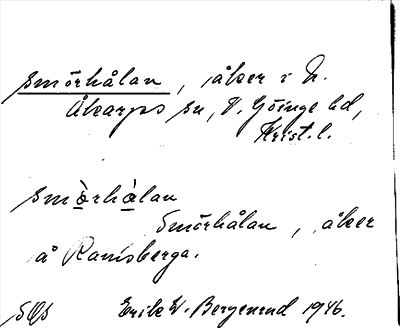 Smörhålan, åker i N.
Åkarps sn, V. Göinge hd,
Krist. l.
smö̀rhå̀lan
Smörhålan, åker
å Ramsberga.
Erik W. Bergenrud 1946.